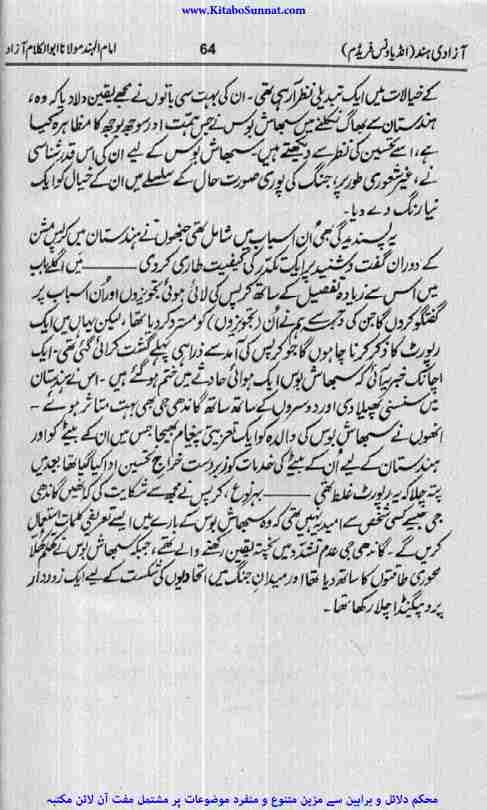 www.KitaboSunnat.com
آزادی ہند (انڈیا ونس فریڈم) 64 امام الہند مولانا ابوالکلام آزاد
کے خیالات میں ایک تبدیلی نظر آرہی تھی۔ ان کی بہت سی باتوں نے مجھے یقین دلا دیا کہ وہ،
ہندستان سے بھاگ نکلنے میں سبھاش بوس نے جس ہمت اور سوجھ بوجھ کا مظاہرہ کیا
ہے، اسے تحسین کی نظر سے دیکھتے ہیں۔ سبھاش بوس کے لیے ان کی اس قدر شناسی
نے، غیر شعوری طور پر، جنگ کی پوری صورت حال کے سلسلے میں ان کے خیال کو ایک
نیا رنگ دے دیا۔
یہ پسندیدگی بھی اُن اسباب میں شامل تھی جنھوں نے ہندستان میں کرپس مشن
کے دوران گفت و شنید پر ایک تکدّر کی کیفیت طاری کر دی ——— میں اگلے باب
میں اس سے زیادہ تفصیل کے ساتھ کرپس کی لائی ہوئی تجویزوں اور اُن اسباب پر
گفتگو کروں گا جن کی وجہ سے ہم نے اُن (تجویزوں) کو مسترد کر دیا تھا، لیکن یہاں میں ایک
رپورٹ کا ذکر کرنا چاہوں گا جو کرپس کی آمد سے ذرا ہی پہلے گشت کرائی گئی تھی۔ ایک
اچانک خبر یہ آئی کہ سبھاش بوس ایک ہوائی حادثے میں ختم ہو گئے ہیں۔ اس نے ہندستان
میں سنسنی پھیلا دی اور دوسروں کے ساتھ ساتھ گاندھی جی بھی بہت متاثر ہوئے۔
انھوں نے سبھاش بوس کی والدہ کو ایک تعزیتی پیغام بھیجا جس میں ان کے بیٹے کو اور
ہندستان کے لیے اُن کے بیٹے کی خدمات کو زبردست خراج تحسین ادا کیا گیا تھا بعد میں
پتہ چلا کہ یہ رپورٹ غلط تھی ——— بہر نوع، کرپس نے مجھ سے شکایت کی کہ انھیں گاندھی
جی جیسے کسی شخص سے امید یہ نہیں تھی کہ وہ سبھاش بوس کے بارے میں ایسے تعریفی کلمات استعمال
کریں گے۔ گاندھی جی عدم تشدّد میں پختہ یقین رکھنے والے تھے، جبکہ سبھاش بوس نے کھلم کھلّا
محوری طاقتوں کا ساتھ دیا تھا اور میدانِ جنگ میں اتحادیوں کی شکست کے لیے ایک زوردار
پروپیگنڈا چلا رکھا تھا۔
محکم دلائل و براہین سے مزین متنوع و منفرد موضوعات پر مشتمل مفت آن لائن مکتبہ